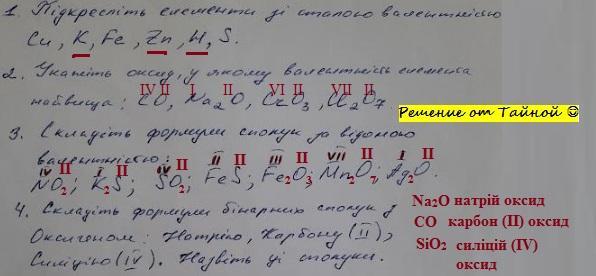 1. Підкресліть елементи зі сталою валентністю
Cu, K, Fe, Zn, H, S.
2. Укажіть оксид, у якому валентність елемента
IV II I II VI II VII II
найвища: CO, Na2O, CrO3, Cl2O7
Решение от Тайной ☺
3. Складіть формули сполук за відомою
валентністю:
IV II I II IV II II II III II VII II I II
NO2; K2S; SO2; FeS; Fe2O3; Mn2O7; Ag2O.
4. Складіть формули бінарних сполук з
Оксигеном: Натрію, Карбону (II),
Силіцію (IV). Назвіть ці сполуки.
Na2O натрій оксид
CO карбон (II) оксид
SiO2 силіцій (IV)
оксид